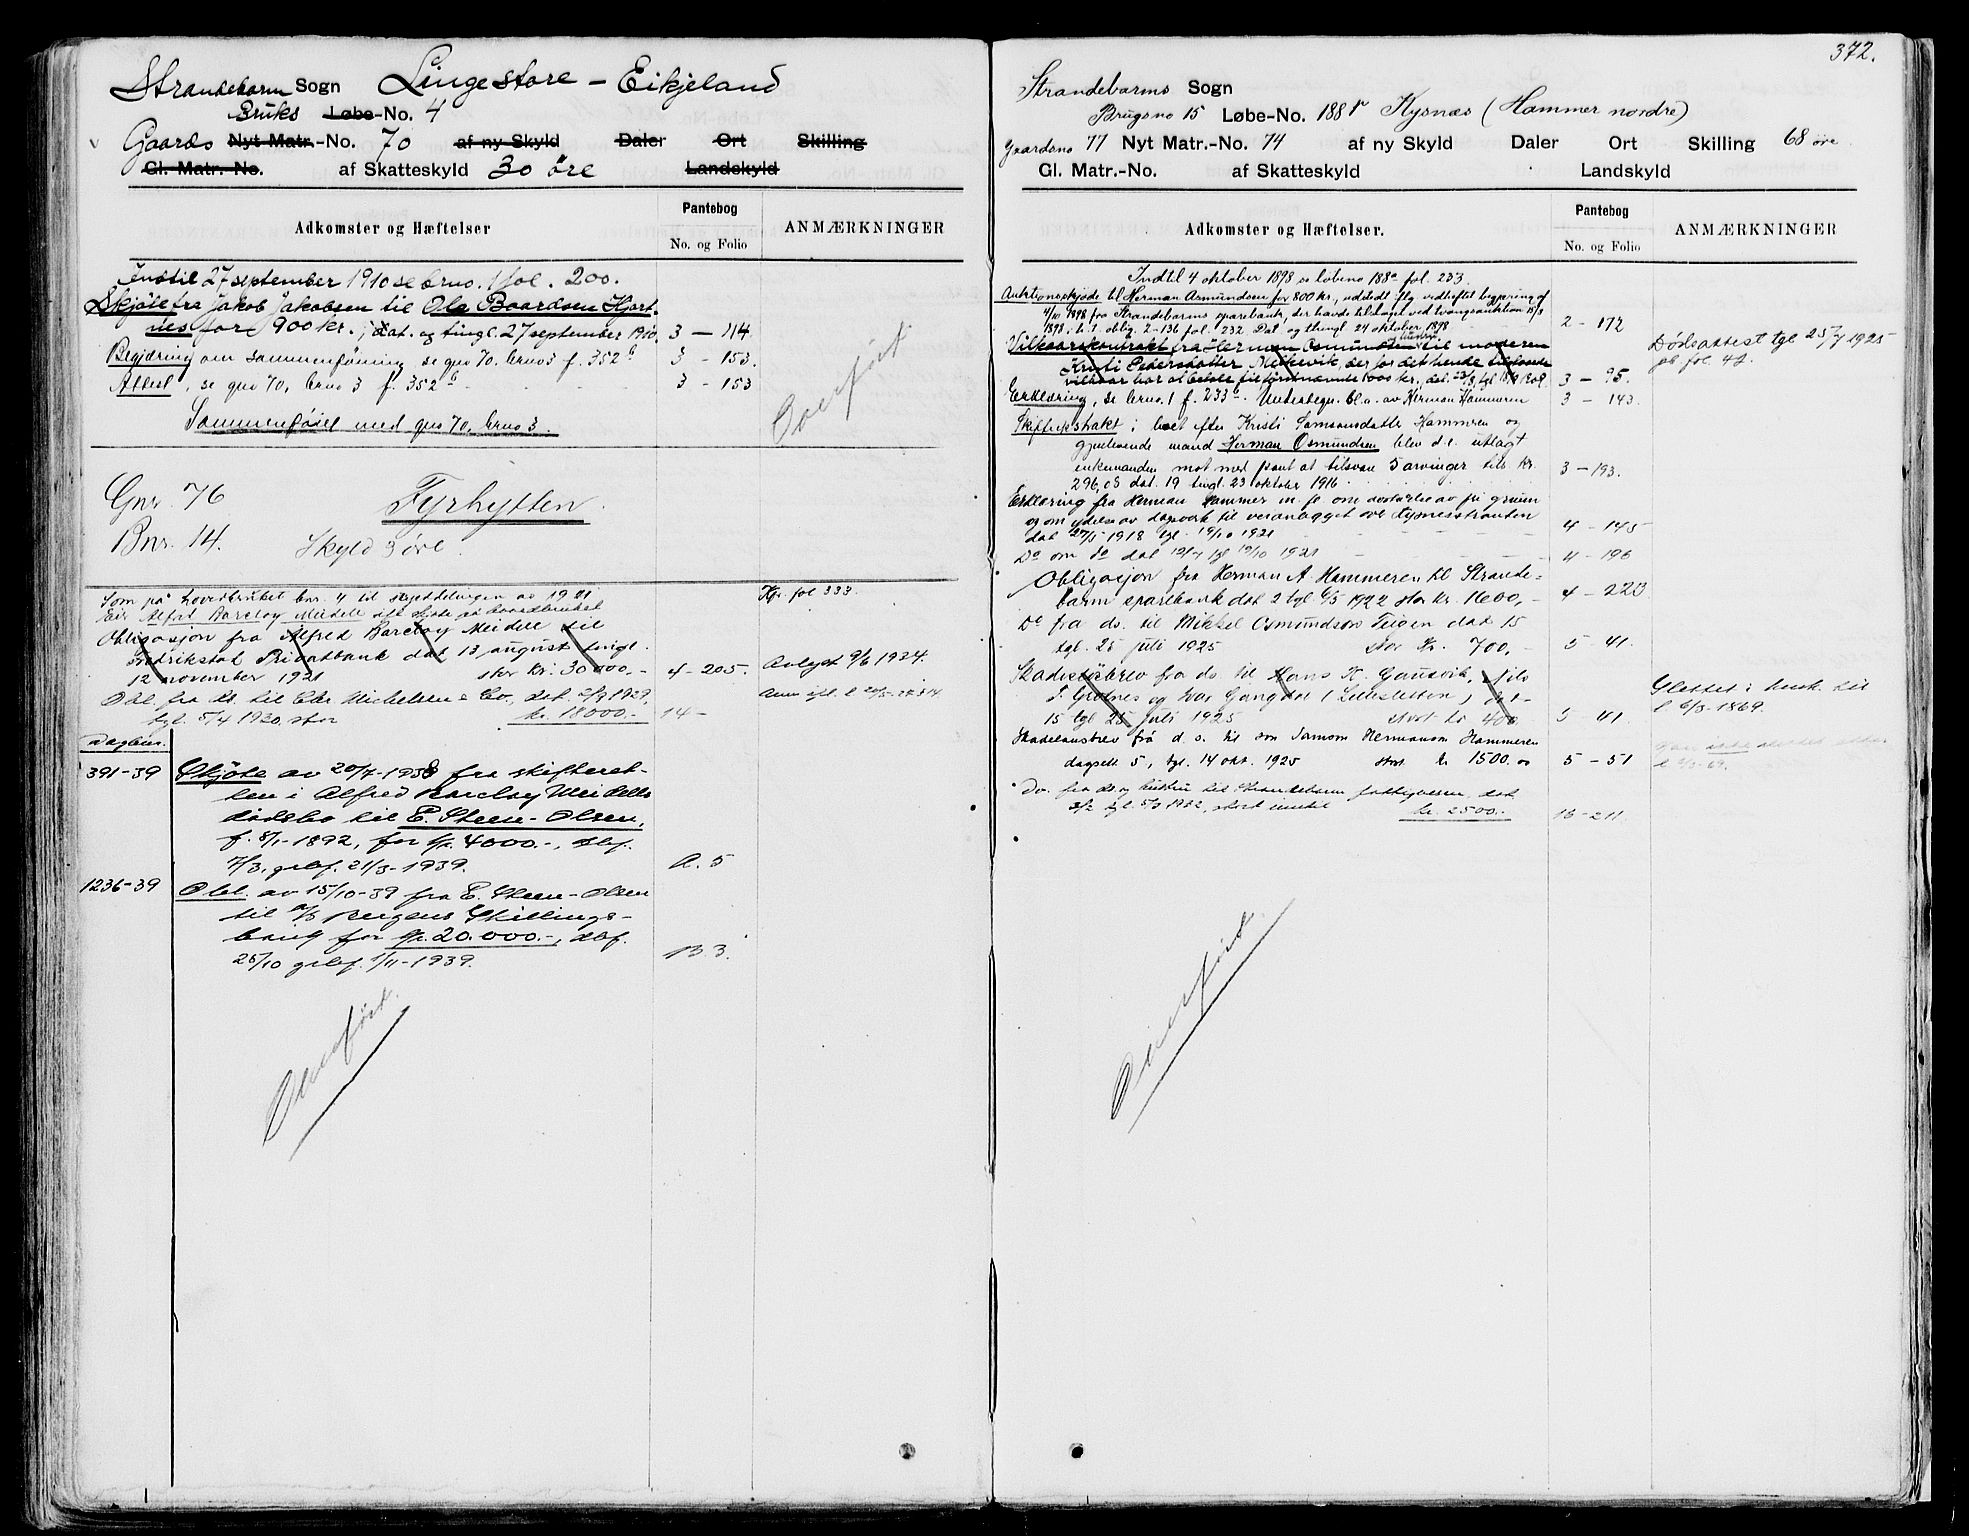 Strandebarm Sogn Linge store - Eikjeland
Bruks Løbe-No. 4
Gaards Nyt Matr.-No. 70 af ny Skyld Daler Ort Skilling
Gl. Matr.-No. af Skatteskyld 30 öre Landskyld
Adkomster og Hæftelser
Pantebog
No. og Folio
ANMÆRKNINGER
Indtil 27 september 1910 se brno. 1 fol. 200.
Skjöte fra Jakob Jakobsen til Ola Baardsen Hjart-
nes for 900 kr., dat. og tingl. 27 september 1910. 3 - 114.
Begjæring om sammenföining se gno 70. brno 3 f. 352 b 3 - 153.
Attest, se gno 70, brno 3 f. 352 b 3 - 153
Sammenföiet med gno 70, brno 3.
Overføit
Gnr. 76 Fyrhytten.
Bnr. 14. Skyld 3 øre.
Som på hovedbruket bnr. 4 til skyddelingen av 1921 Kfr. fol 333.
Eier Alfred Barclay Meidell
Obligasjon fra Alfred Barclay Meidell til
Fredrikstad Privatbank dat 13 august tingl.
12 november 1921 stor kr. 30 000.- 4-205. Avlyst 9/6 1934.
Obl. fra ds. til Chr Michelsen & Co., dat
tgl. 5/4 1930, stor kr. 18000.- 14-
Dagbnr.
391-39 Skjöte av 20/7-1938 fra skifteret-
ten i Alfred Barclay Meidells
dödsbo til E. Steen-Olsen,
f. 8/1-1892, for kr. 4000.-, dbf.
7/3, grbf. 21/3-1939. A. 5
1236-39 Obl. av 15/10-39 fra E. Steen-Olsen
til A/S Bergens Skillings-
bank for kr. 20.000.-, dbf.
25/10 grbf. 1/11-1939. B 3.
Overføit.
372.
Strandebarms Sogn
Brugsno 15 Løbe-No. 188 r Kysnæs (Hammer nordre)
Gaardsno 77 Nyt Matr.-No. 74 af ny Skyld Daler Ort Skilling 68 øre
Gl. Matr.-No. af Skatteskyld Landskyld
Adkomster og Hæftelser.
Pantebog
No. og Folio
ANMÆRKNINGER
Indtil 4 oktober 1898 se løbeno 188 a fol. 233.
Auktionsskjøde til Herman Asmundsen for 800 kr., udstedt iflg. vedheftet begjæring af
4/10 1898 fra Strandebarms sparebank, der havde tilslaget ved tvangsauktion 15/3
1898 i h. t. oblig. 2-136 fol. 232 Dat og thingl 24 oktober 1898 2 - 172
Vilkaarskontrakt fra Herman Osmundsen til moderen
Kristi Pedersdatter Melkevik, der for det hende tilstaaede
vilkaar har at betale til förstnævnte 1000 kr., dat. 3 - 95.
Dødsattest tgl 25/7 1925
pb. fol. 42.
Erklæring, se brno. 1 f. 233 a. Undertegn. bl.a. av Herman Hammeren 3 - 143.
Skifteekstrakt i boet efter Kristi Samsonsdatter Hammeren og
gjenlevende mand Herman Osmundsen blev d. e. utlagt
enkemanden mot med pant at tilsvare 5 arvinger tils. kr.
296,08 dat. 19 tingl. 23 oktober 1916. 3 - 193.
Erklæring fra Herman Hammer m. fl. om avståelse av fri grunn
og om ydelse av dagsverk til veranlegget over Kysnesstranden
dat 27/5 1918 tgl. 19/10 1921 4 - 145
Do om do dat 12/7 tgl 19/10 1921 4 - 196
Obligasjon fra Herman A. Hammeren til Strande-
barm sparebank dat 2 tgl 6/5 1922 stor kr. 1600,- 4 - 220
Do fra ds. til Mikkel Osmundson Teigen dat 15
tgl. 25 juli 1925 stor kr. 700,- 5 - 41.
Skadesløsbrev fra ds. til Hans K. Gausvik, Nils
15 tgl 25 juli 1925 stort kr 400 5 - 41.
Slettet i henh. til
Skadelausbrev frå d. s. til son Samson Hermanson Hammeren
dagsett 5, tgl. 14 okt. 1925 stort kr 1500.00 5 - 51
Do. fra ds og hustru til Strandebarm fattigvesen, dat
kr. 2500.- 16-211.
Overføit.